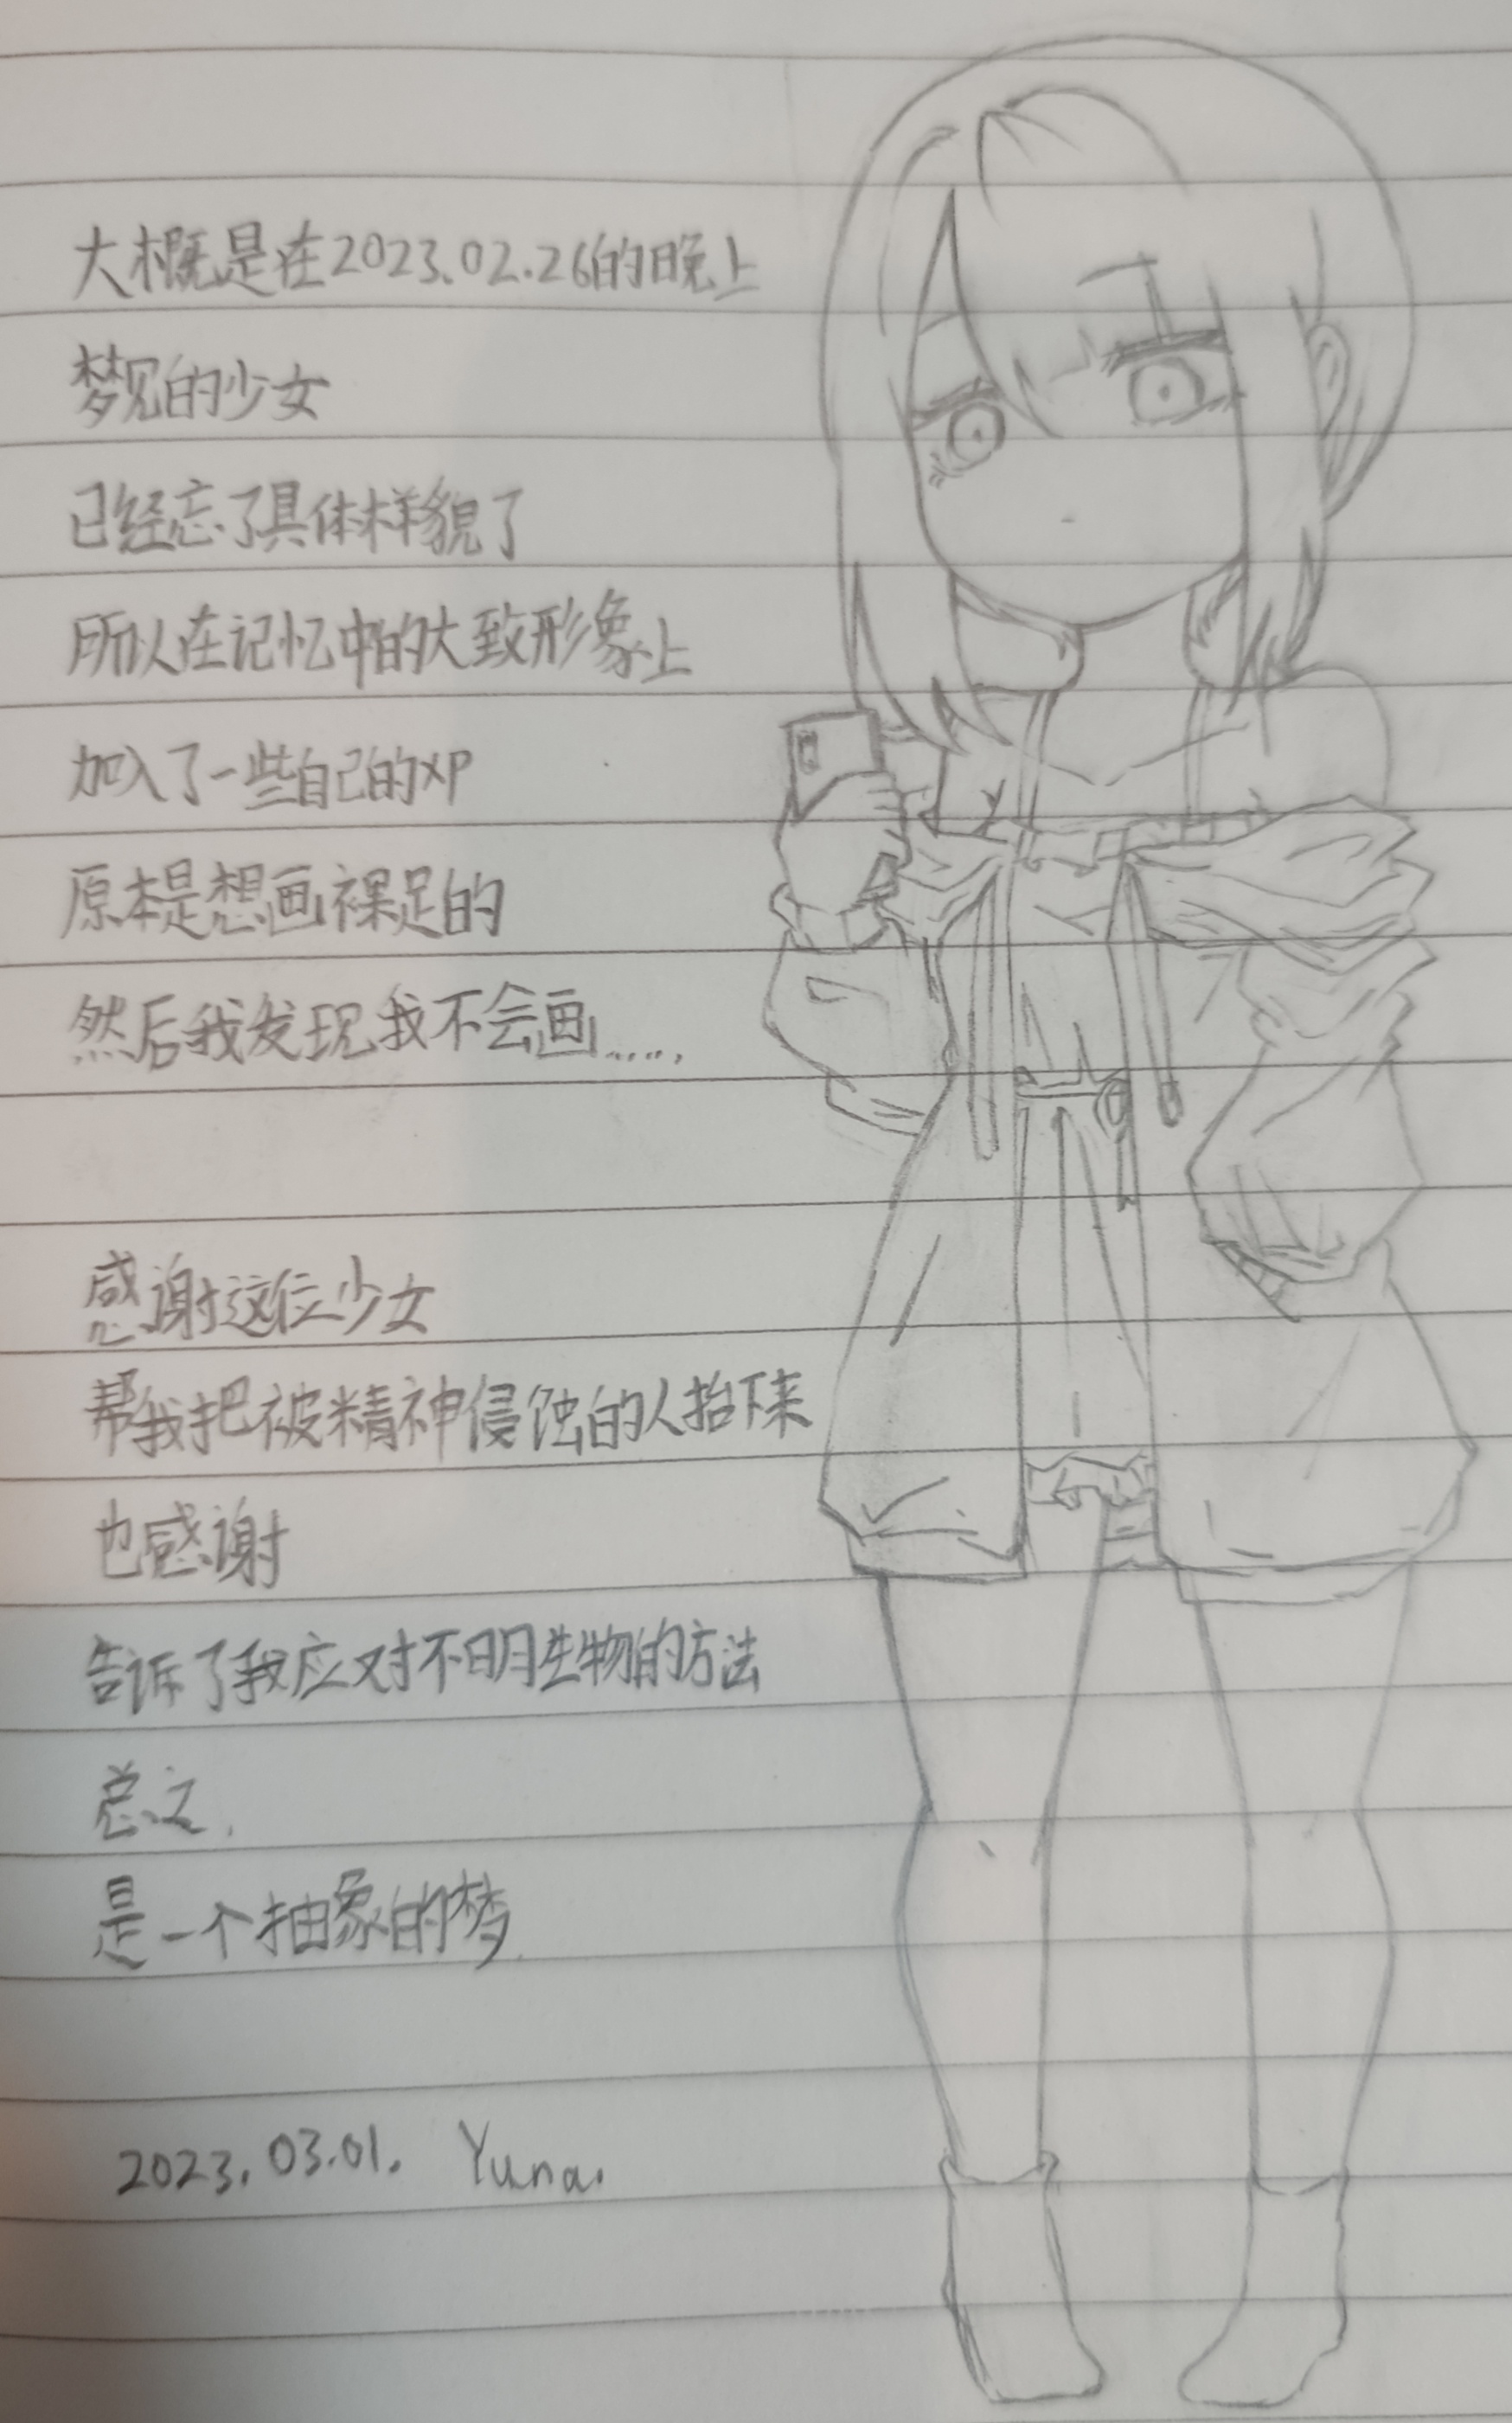 大概是在2023.02.26的晚上
梦见的少女
已经忘了具体样貌了
所以在记忆中的大致形象上
加入了一些自己的XP
原本是想画裸足的
然后我发现我不会画……
感谢这位少女
帮我把被精神侵蚀的人抬下来
也感谢
告诉了我应对不明生物的方法
总之,
是一个抽象的梦.
2023.03.01. Yuna.